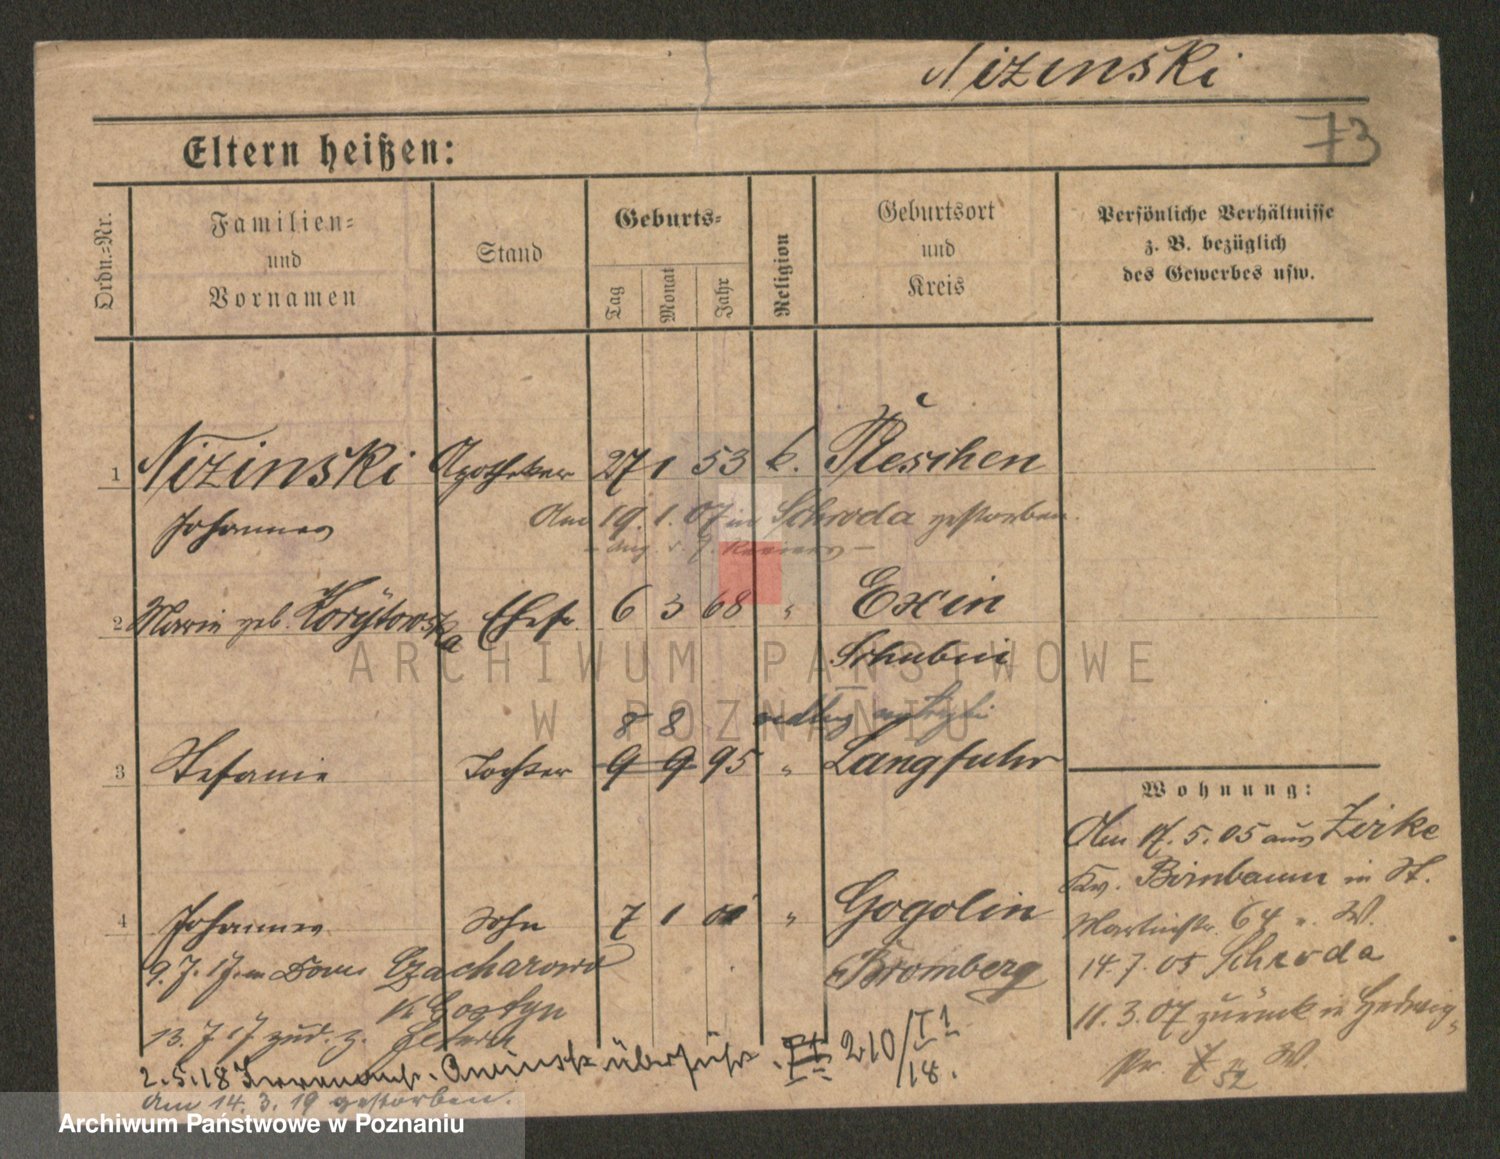 Nizinski
73
Eltern heißen:
Ordn.-Nr.
Familien-
und
Vornamen
Stand
Geburts-
Tag
Monat
Jahr
Religion
Geburtsort
und
Kreis
Persönliche Verhältnisse
z. B. bezüglich
des Gewerbes usw.
1 Nizinski Apotheker 27 1 53 k. Pleschen
Johannes
Am 19. 1. 07 in Schroda gestorben.
2 Marie geb. Korytowska Ehefr 6 3 68 " Exin
Schubin
8 8
3 Stefanie Tochter 9 9 95 " Langfuhr
4 Johannes Sohn 7 1 01 " Gogolin
Bromberg
9. 7. 17 Czacharowo
K Gostyn
13. 7. 17 zur. z.
2. 5. 18 überführt. 210/I 1
18.
Am 14. 3. 19 gestorben.
Wohnung:
Am 17. 5. 05 aus Zirke
Kr. Birnbaum in St.
Martinstr. 64 W.
14. 7. 05 Schroda
11. 3. 07 zurück in Hedwig-
str. 7 W.
52
ARCHIWUM PAŃSTWOWE
W POZNANIU
Archiwum Państwowe w Poznaniu